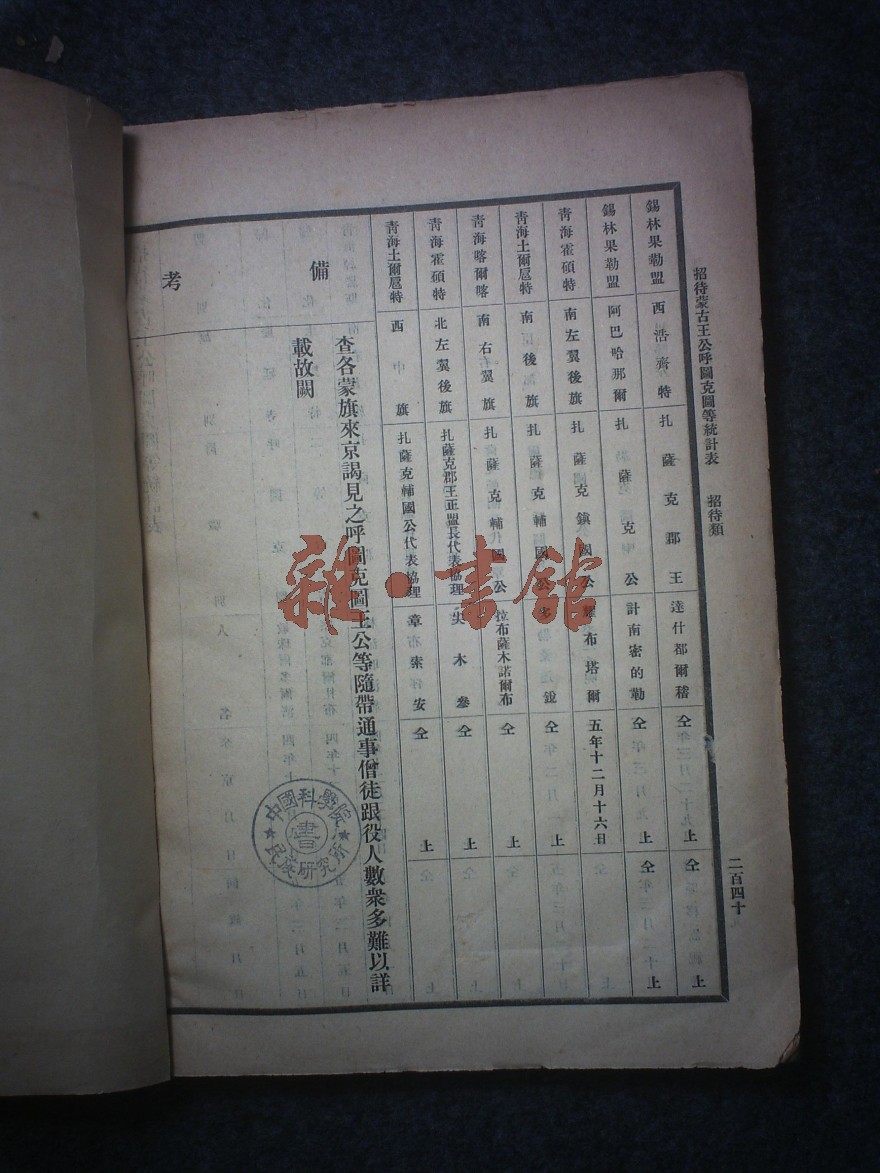 招待蒙古王公呼圖克圖等統計表 招待類
二百四十
錫林果勒盟 西浩齊特 扎薩克郡王 達什都爾稽 仝上 仝上
錫林果勒盟 阿巴哈那爾 扎薩克公 計南密的勒 仝上 仝上
青海霍碩特 南左翼後旗 扎薩克鎮國公 布塔爾 五年十二月十六日 仝上
青海土爾扈特 南後旗 扎薩克輔國公 仝上
青海喀爾喀 南右翼旗 扎薩克輔國公 拉布薩木諾爾布 仝上 仝上
青海霍碩特 北左翼後旗 扎薩克郡王正盟長代表協理 尖木參 仝上 仝上
青海土爾扈特 西中旗 扎薩克輔國公代表協理 章布索 安 仝上 仝上
備考
查各蒙旗來京謁見之呼圖克圖王公等隨帶通事僧徒跟役人數衆多難以詳
載故闕
中國科學院
民族研究所
書
雜·書館